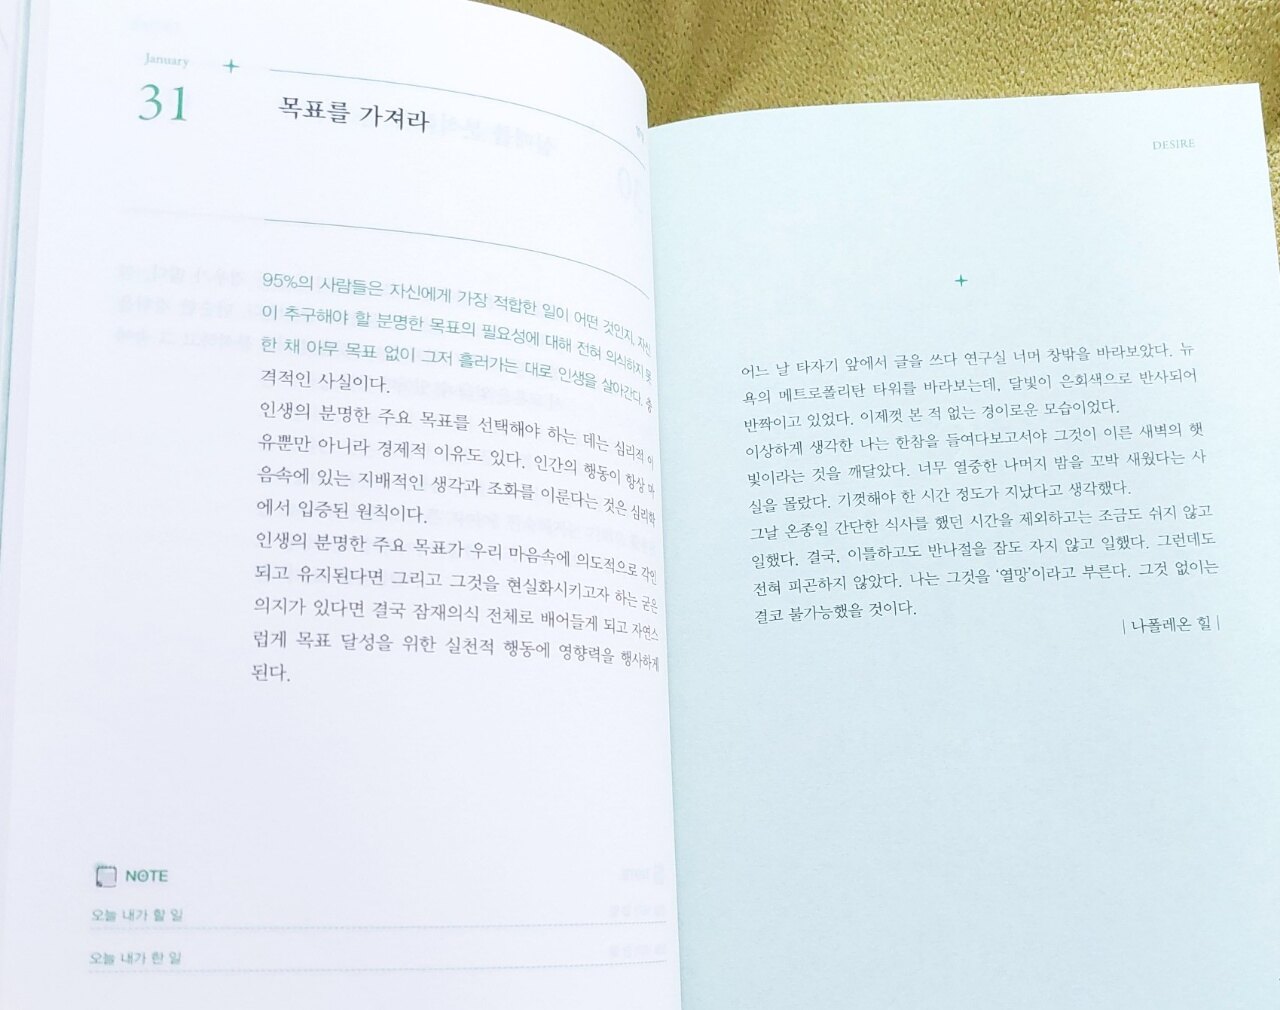 January
31
목표를 가져라
95%의 사람들은 자신에게 가장 적합한 일이 어떤 것인지, 자신
이 추구해야 할 분명한 목표의 필요성에 대해 전혀 의식하지 못
한 채 아무 목표 없이 그저 흘러가는 대로 인생을 살아간다. 충
격적인 사실이다.
인생의 분명한 주요 목표를 선택해야 하는 데는 심리적 이
유뿐만 아니라 경제적 이유도 있다. 인간의 행동이 항상 마
음속에 있는 지배적인 생각과 조화를 이룬다는 것은 심리학
에서 입증된 원칙이다.
인생의 분명한 주요 목표가 우리 마음속에 의도적으로 각인
되고 유지된다면 그리고 그것을 현실화시키고자 하는 굳은
의지가 있다면 결국 잠재의식 전체로 배어들게 되고 자연스
럽게 목표 달성을 위한 실천적 행동에 영향력을 행사하게
된다.
NOTE
오늘 내가 할 일
오늘 내가 한 일
DESIRE
어느 날 타자기 앞에서 글을 쓰다 연구실 너머 창밖을 바라보았다. 뉴
욕의 메트로폴리탄 타워를 바라보는데, 달빛이 은회색으로 반사되어
반짝이고 있었다. 이제껏 본 적 없는 경이로운 모습이었다.
이상하게 생각한 나는 한참을 들여다보고서야 그것이 이른 새벽의 햇
빛이라는 것을 깨달았다. 너무 열중한 나머지 밤을 꼬박 새웠다는 사
실을 몰랐다. 기껏해야 한 시간 정도가 지났다고 생각했다.
그날 온종일 간단한 식사를 했던 시간을 제외하고는 조금도 쉬지 않고
일했다. 결국, 이틀하고도 반나절을 잠도 자지 않고 일했다. 그런데도
전혀 피곤하지 않았다. 나는 그것을 ‘열망’이라고 부른다. 그것 없이는
결코 불가능했을 것이다.
| 나폴레온 힐 |